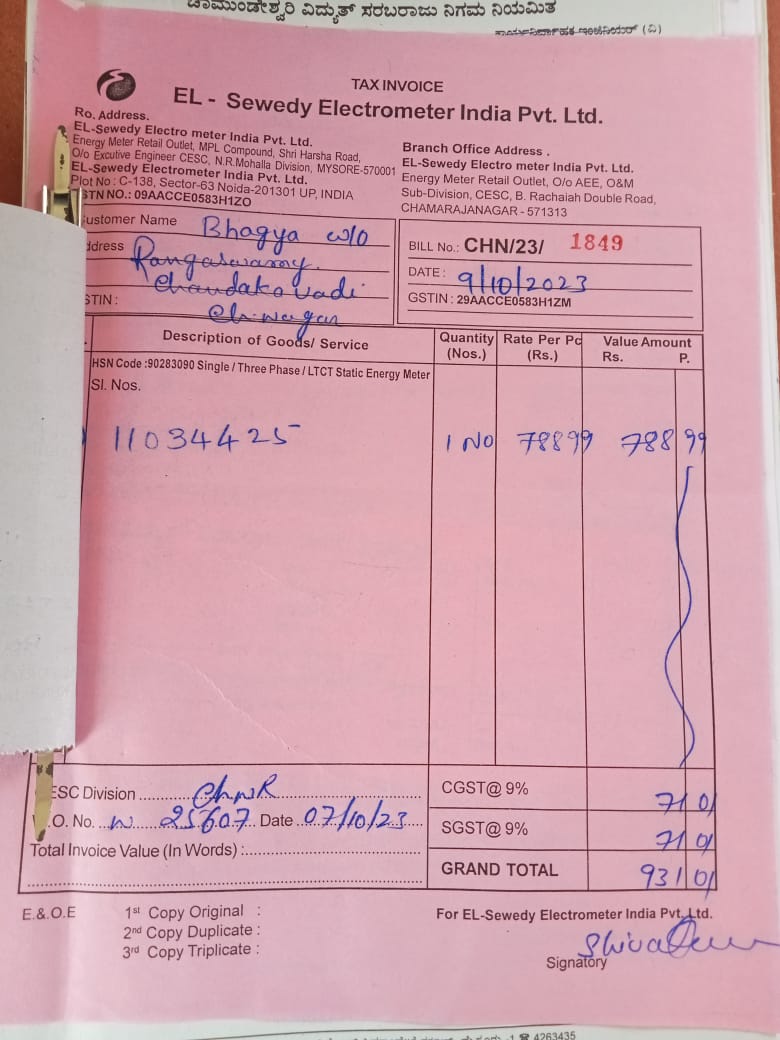 ಚಾಮುಂಡೇಶ್ವರಿ ವಿದ್ಯುತ್ ಸರಬರಾಜು ನಿಗಮ ನಿಯಮಿತ
TAX INVOICE
EL - Sewedy Electrometer India Pvt. Ltd.
Ro. Address.
EL-Sewedy Electro meter India Pvt. Ltd.
Energy Meter Retail Outlet, MPL Compound, Shri Harsha Road,
O/o Excutive Engineer CESC, N.R.Mohalla Division, MYSORE-570001
EL-Sewedy Electrometer India Pvt. Ltd.
Plot No : C-138, Sector-63 Noida-201301 UP, INDIA
STN NO.: 09AACCE0583H1ZO
Branch Office Address .
EL-Sewedy Electro meter India Pvt. Ltd.
Energy Meter Retail Outlet, O/o AEE, O&M
Sub-Division, CESC, B. Rachaiah Double Road,
CHAMARAJANAGAR - 571313
ustomer Name Bhagya w/o
ddress Rangaswamy.
Chandakavadi
STIN : Ch.nagar
BILL No.: CHN/23/ 1849
DATE : 9/10/2023
GSTIN : 29AACCE0583H1ZM
Description of Goods/ Service Quantity (Nos.) Rate Per Pc (Rs.) Value Amount Rs. P.
HSN Code :90283090 Single / Three Phase / LTCT Static Energy Meter
Sl. Nos.
11034425 1 No 78899 788 99
ESC Division ChNR CGST@ 9% 71 01
.O. No. w 25607 Date 07/10/23 SGST@ 9% 71 01
Total Invoice Value (In Words) : GRAND TOTAL 931 01
E.&.O.E 1st Copy Original :
2nd Copy Duplicate :
3rd Copy Triplicate :
For EL-Sewedy Electrometer India Pvt. Ltd.
Signatory
4263435